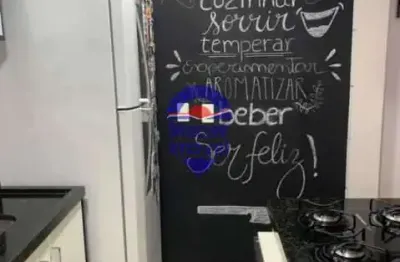 cozinhar
sorrir
temperar
experimentar
AROMATIZAR
beber
Ser feliz!